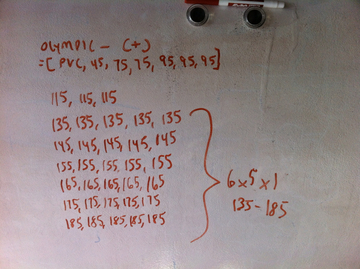 OLYMPIC - (+)
=[PVC, 45, 75, 75, 95, 95, 95]
115, 115, 115
135, 135, 135, 135, 135
145, 145, 145, 145, 145
155, 155, 155, 155, 155
165, 165, 165, 165, 165
175, 175, 175, 175, 175
185, 185, 185, 185, 185
6 x 5 x 1
135 - 185